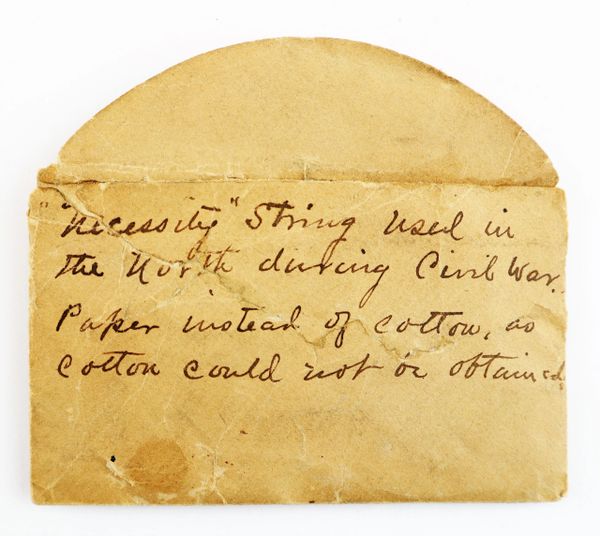 "Necessity" String used in
the North during Civil War.
Paper instead of cotton, as
cotton could not be obtained.